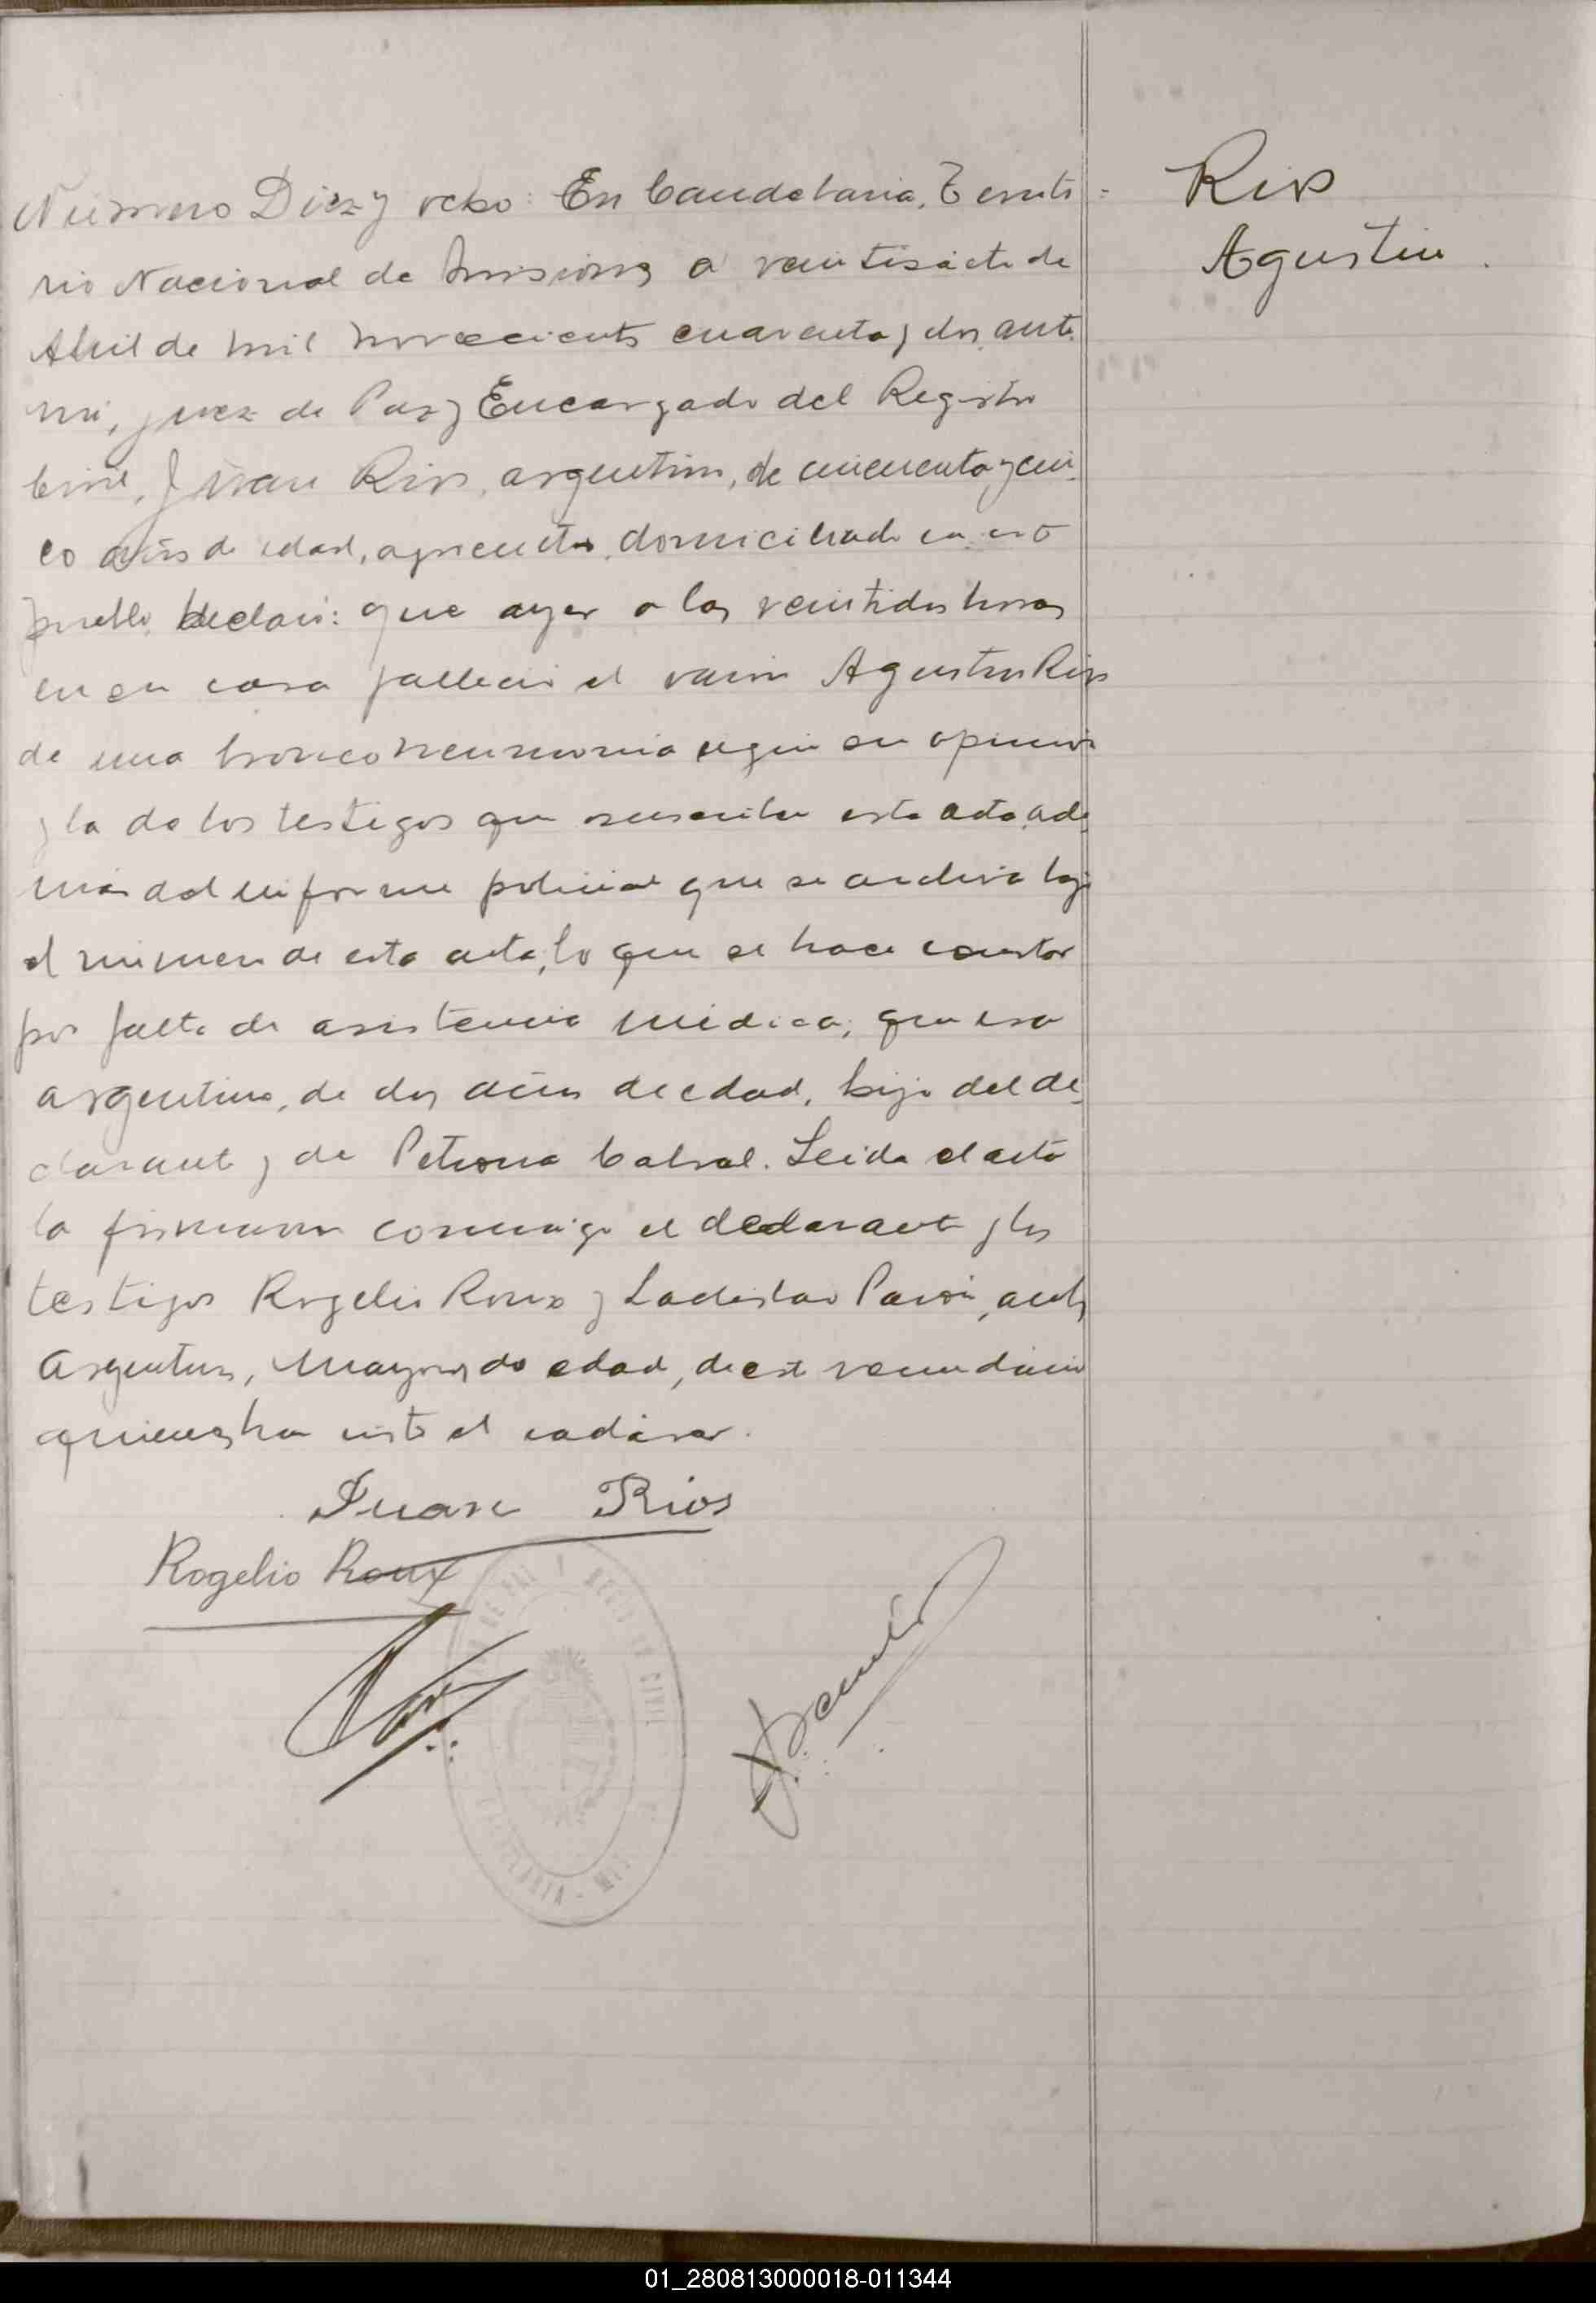 Rios
Agustin.
Número Diez y ocho: En Candelaria, Territo-
rio Nacional de Misiones a veintisiete de
Abril de mil novecientos cuarenta y dos, ante
mi, Juez de Paz y Encargado del Registro
Civil, Juan Rios, argentino, de cincuenta y cin-
co años de edad, agricultor, domiciliado en este
pueblo, declaró: que ayer a las veintidos horas
en su casa falleció el varón Agustin Rios
de una bronconeumonia según su opinión
y la de los testigos que suscriben esta acta, ade-
más del informe policial que se archiva bajo
el número de esta acta, lo que se hace constar
por falta de asistencia médica; que era
argentino, de dos años de edad, hijo del de-
clarante y de Petrona Cabral. Leida el acta
la firmaron conmigo el declarante y los
testigos Rogelio Roux y Ladislao, ambos
argentinos, mayores de edad, de este vecindario
quienes han visto el cadáver.
Juan Rios
Rogelio Roux
CIVIL
01_280813000018-011344